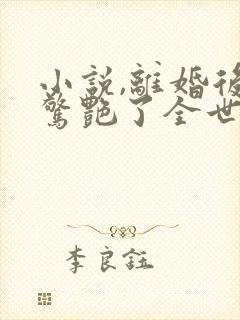 小説,離婚後
驚艷了全世
李良鈺